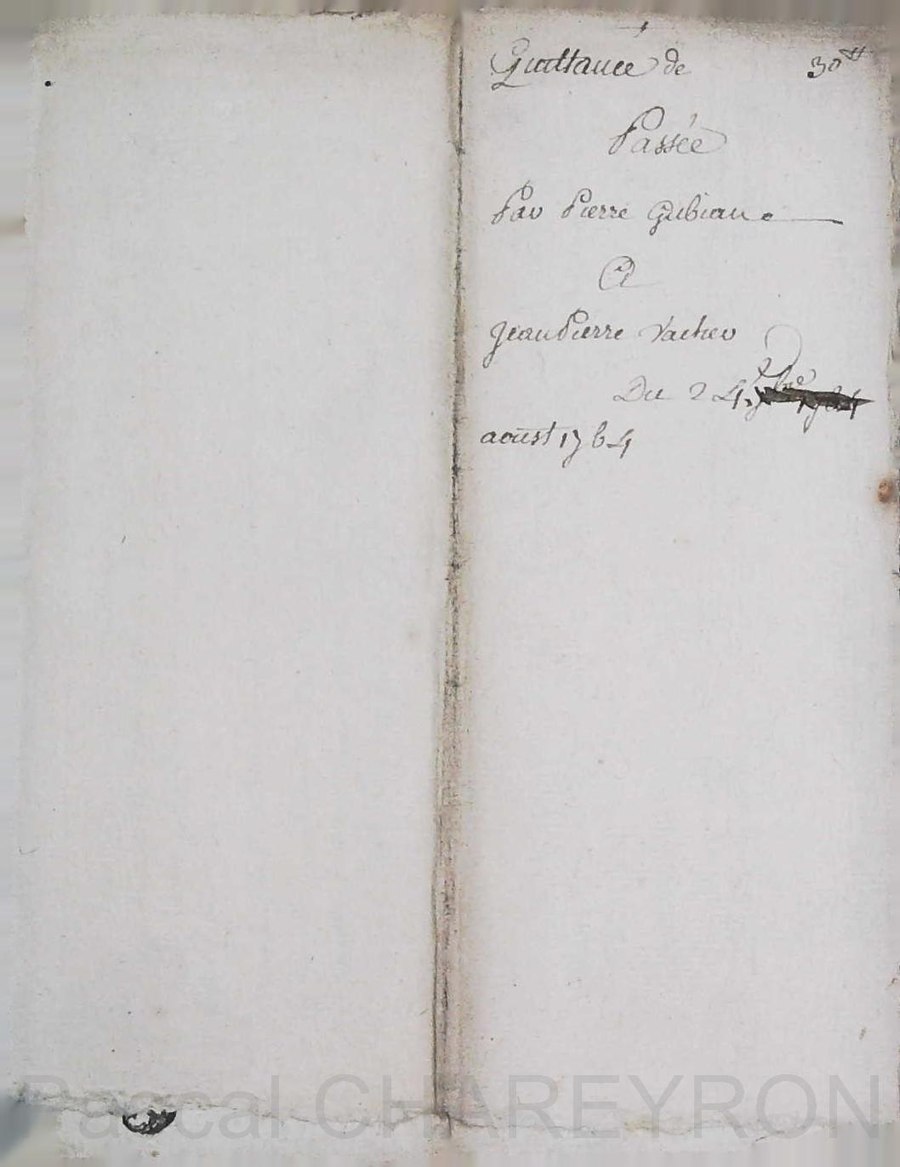 Quittance de 30 ₶
Passée
Par Pierre Gubian
A
Jean Pierre Vacher
Du 24
aoust 1764
Pascal CHAREYRON